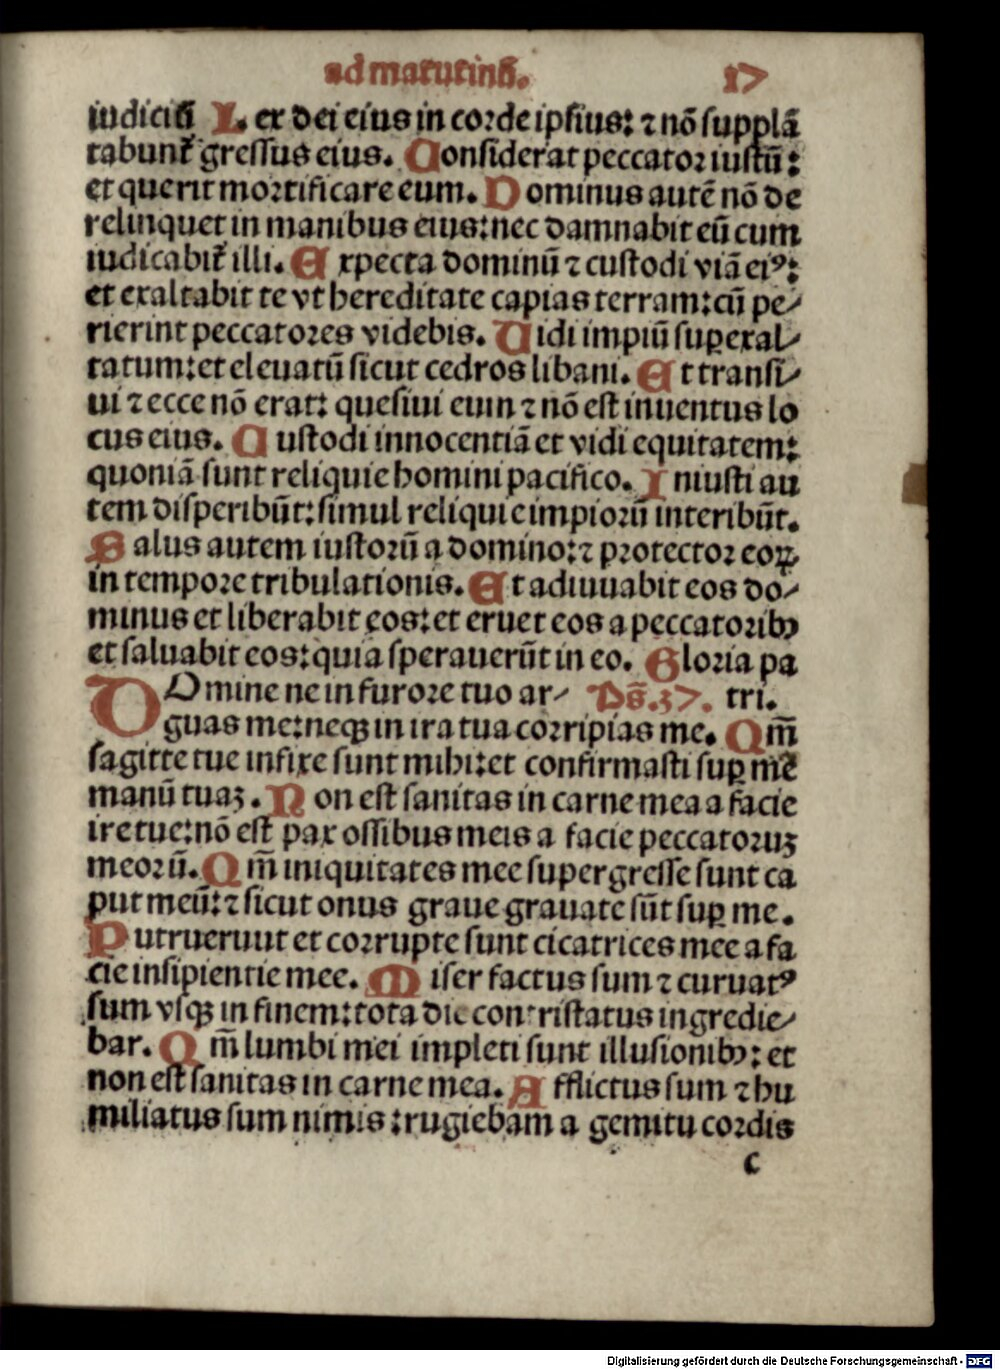 ad matutinū. 17
iudiciū L. ex dei eius in corde ipsius: ⁊ nō supplā
tabunt᷑ gressus eius. Considerat peccator iustū:
et querit mortificare eum. Dominus autē nō de
relinquet in manibus eius: nec damnabit eū cum
iudicabit᷑ illi. Expecta dominū ⁊ custodi viā eiꝰ:
et exaltabit te vt hereditate capias terram: cū pe/
rierint peccatores videbis. Uidi impiū suꝑexal/
tatum: et eleuatū sicut cedros libani. Et transi/
ui ⁊ ecce nō erat: quesiui eum ⁊ nō est inuentus lo
cus eius. Custodi innocentiā et vidi equitatem:
quoniā sunt reliquie homini pacifico. Iniusti au
tem disperibūt: simul reliquie impiorū interibūt.
Salus autem iustorū a domino: ⁊ protector eoꝝ
in tempore tribulationis. Et adiuuabit eos do/
minus et liberabit eos: et eruet eos a peccatoribꝰ
et saluabit eos: quia sperauerūt in eo. Gloria pa
DOmine ne in furore tuo ar/ Ps̄. 37. tri.
guas me: neqꝫ in ira tua corripias me. Qm̄
sagitte tue infixe sunt mihi: et confirmasti suꝑ me
manū tuaꝫ. Non est sanitas in carne mea a facie
ire tue: nō est pax ossibus meis a facie peccatoruꝫ
meorū. Qm̄ iniquitates mee supergresse sunt ca
put meū: ⁊ sicut onus graue grauate sūt suꝑ me.
Putrueruut et corrupte sunt cicatrices mee a fa
cie insipientie mee. Miser factus sum ⁊ curuatꝰ
sum vsqꝫ in finem: tota die contristatus ingredie/
bar. Qm̄ lumbi mei impleti sunt illusionibꝰ: et
non est sanitas in carne mea. Afflictus sum ⁊ hu
miliatus sum nimis: rugiebam a gemitu cordis
c
Digitalisierung gefördert durch die Deutsche Forschungsgemeinschaft - DFG